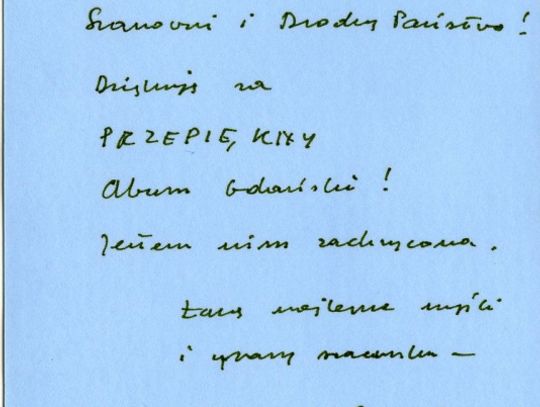 Szanowni i Drodzy Państwo!
Dziękuję za
PRZEPIĘKNY
Album Gdański!
Jestem nim zachwycona.
Łączę najlepsze myśli
i wyrazy szacunku –